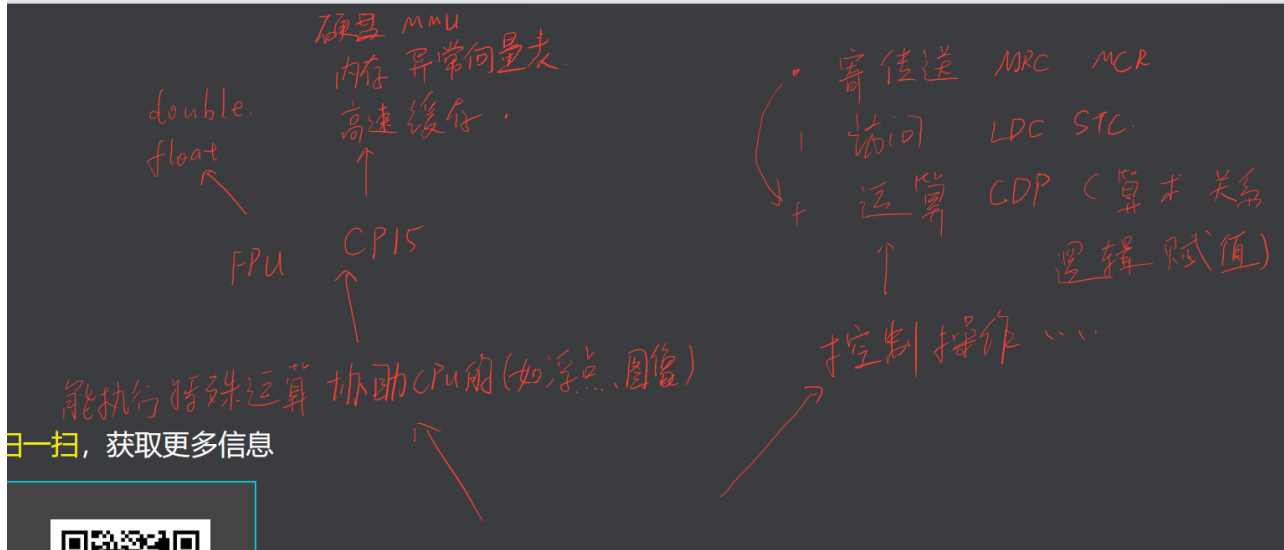 硬盘 MMU
内存 异常向量表.
高速缓存.
double.
float
FPU
CP15
能执行特殊运算 协助CPU的(如浮点、图像)
· 寄传送 MRC MCR
访问 LDC STC.
+ 运算 CDP (算术 关系
逻辑 赋值)
控制操作 ……
扫一扫，获取更多信息